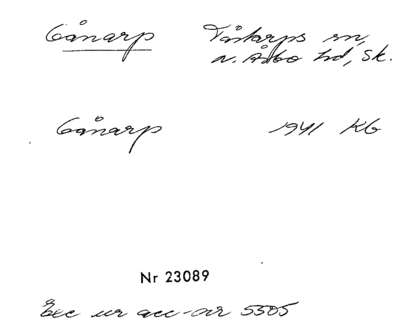 Gånarp Tåstarps sn,
N. Åsbo hd, Sk.
Gånarp 1941 KG
Nr 23089
Exc ur acc-nr 5505